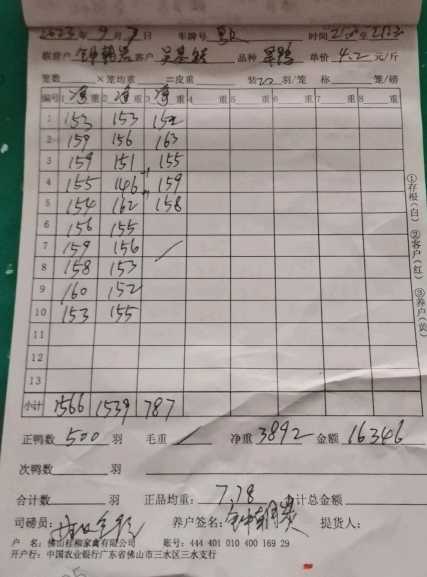 2023年9月7日 车牌号 时间
养户 客户 品种 单价4.2元/斤
笼数 ×笼均重 =皮重 装 羽/笼 称 笼/磅
编号 1 净重 2 净重 3 净重 4 重 5 重 6 重 7 重 8 重
1 153 153 152
2 159 156 163
3 159 151 155
4 155 146 159
5 154 162 158
6 156 155
7 159 156
8 158 153
9 160 152
10 153 155
11
12
13
小计 1566 1539 787
正鸭数 500 羽 毛重 净重 3892 金额 16346
次鸭数 羽
合计数 羽 正品均重: 7.78 计总金额
司磅员: 养户签名: 提货人:
户 名: 佛山桂柳家禽有限公司 账号: 444 401 010 400 169 29
开户行: 中国农业银行广东省佛山市三水区三水支行
①存根(白) ②客户(红) ③养户(黄)